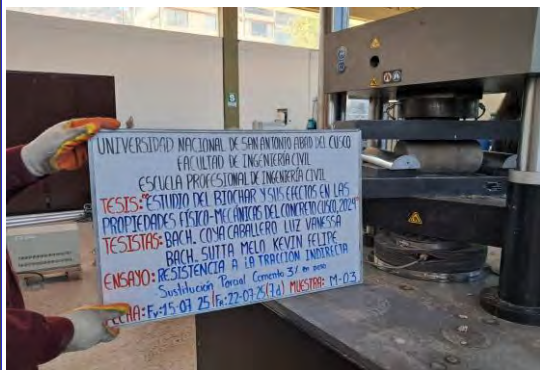 UNIVERSIDAD NACIONAL DE SAN ANTONIO ABAD DEL CUSCO
FACULTAD DE INGENIERÍA CIVIL
ESCUELA PROFESIONAL DE INGENIERÍA CIVIL
TESIS: "ESTUDIO DEL BIOCHAR Y SUS EFECTOS EN LAS
PROPIEDADES FÍSICO-MECÁNICAS DEL CONCRETO, CUSCO, 2024"
TESISTAS: BACH. COYA CABALLERO LUZ VANESSA
BACH. SUTTA MELO KEVIN FELIPE
ENSAYO: RESISTENCIA A LA TRACCIÓN INDIRECTA
- Sustitución Parcial Cemento 3% en peso
FECHA: Fv:15-07 25 | Fr:22-07 25 (7d) MUESTRA: M-03